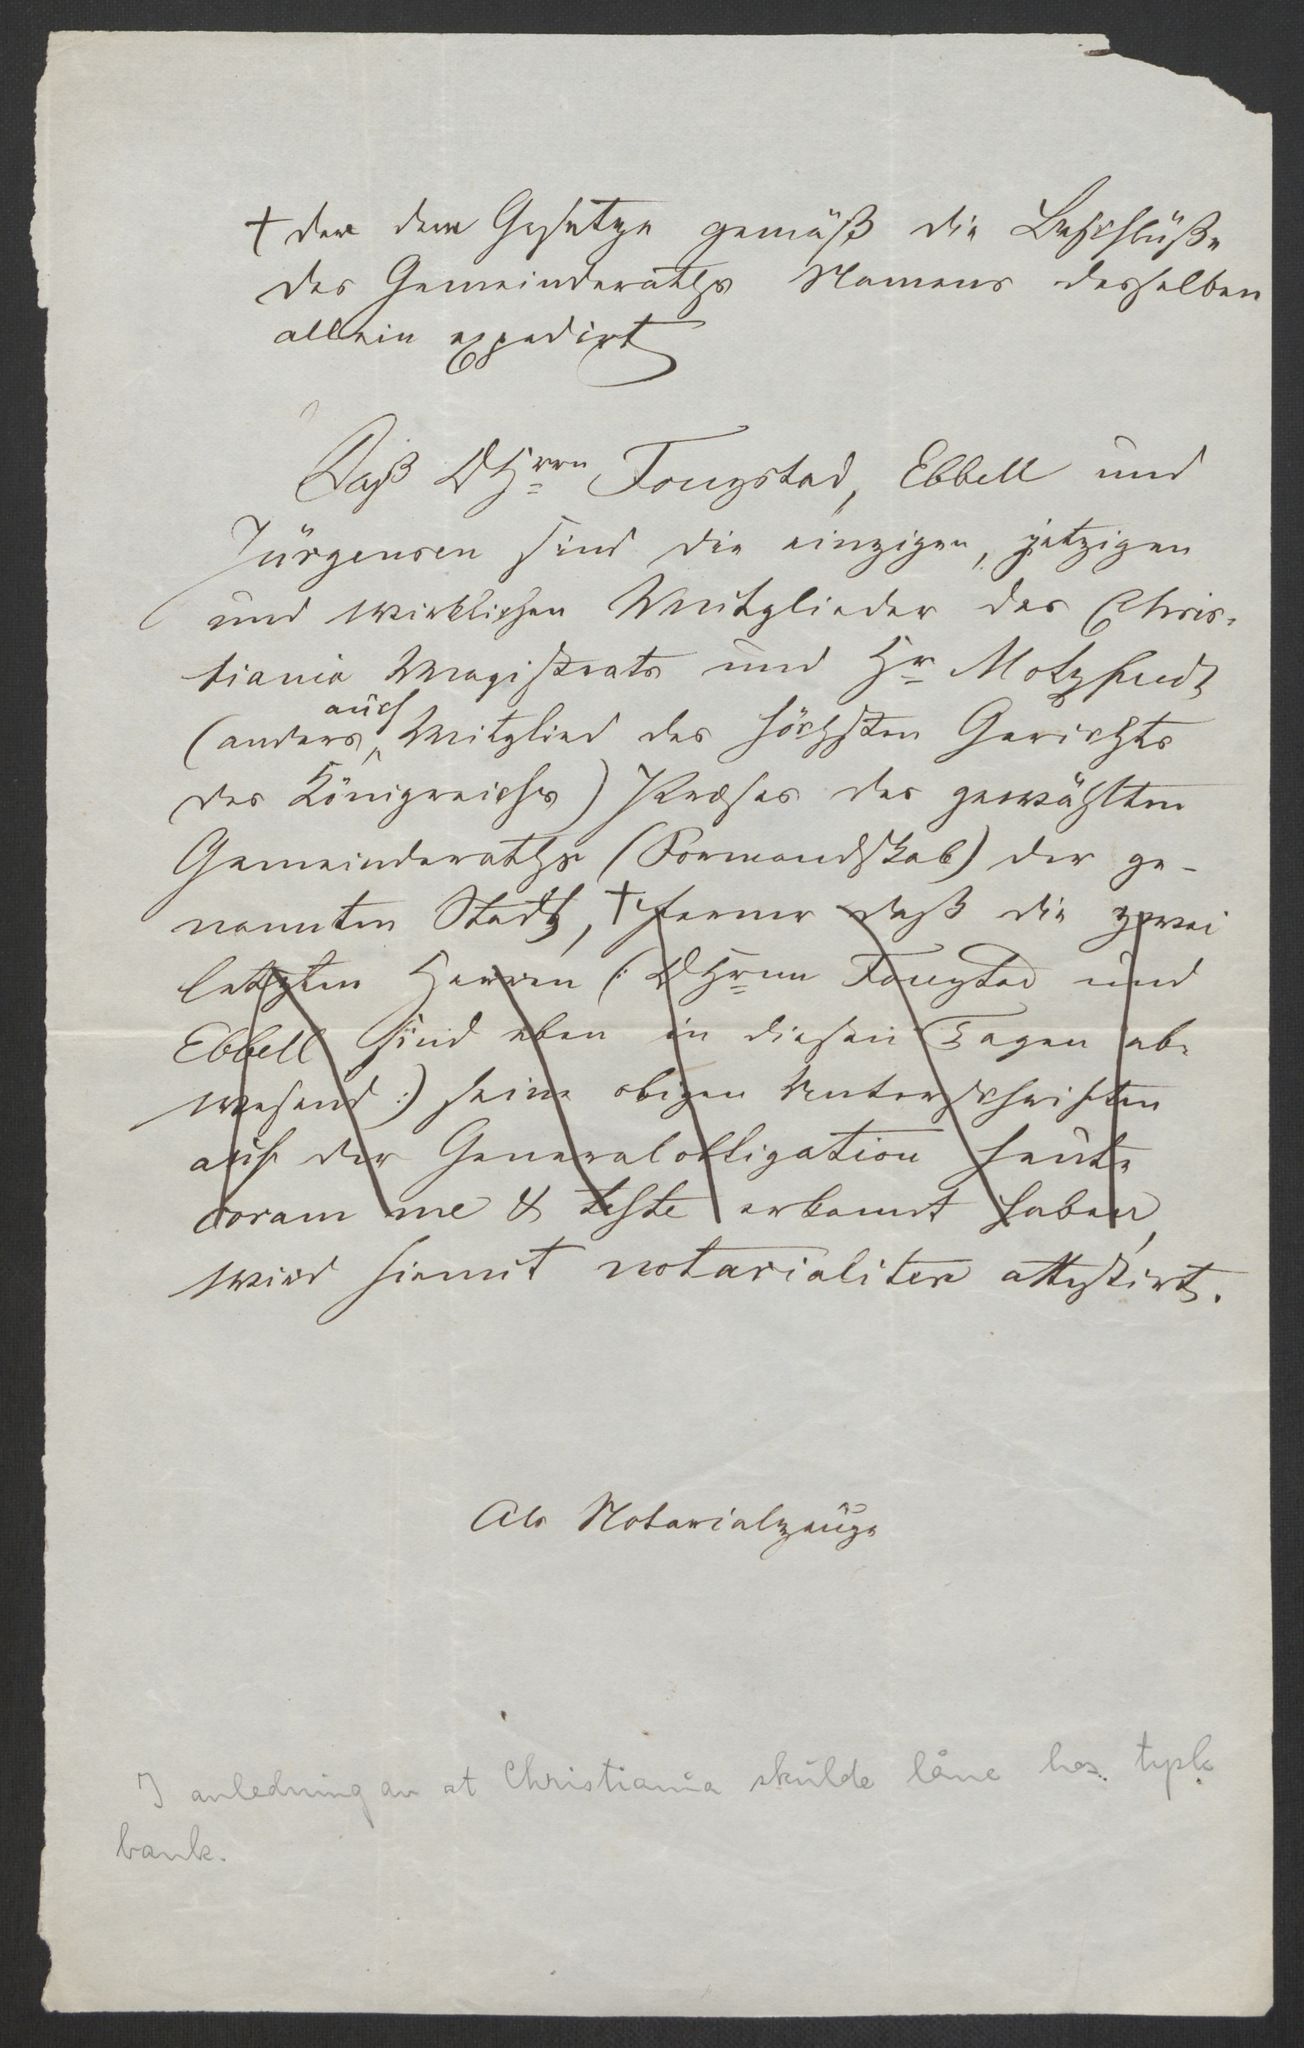 † der dem Gesetze gemäß die Beschlüße
des Gemeinderaths Namens desselben
allein expedirt
Daß DHrrn Fougstad, Ebbell und
Jürgensen sind die einzigen, jetzigen
und wirklichen Mitglieder des Chris-
tiania Magistrats und Hr Motzfeldt
(anders auch Mitglied des höchsten Gerichts
des Königreichs) Præses des gewählten
Gemeinderaths (Formandskab) der ge-
nannten Stadt, † ferner daß die zwei
letzten Herren (: DHrnn Fougstad und
Ebbell sind eben in diesen Tagen ab-
wesend :) seine obigen Unterschriften
auf der Generalobligation heute
coram me & teste erkannt haben,
wird hiemit notarialiter attestirt.
Als Notarialzeuge
I anledning av at Christiania skulde låne hos tysk
bank.